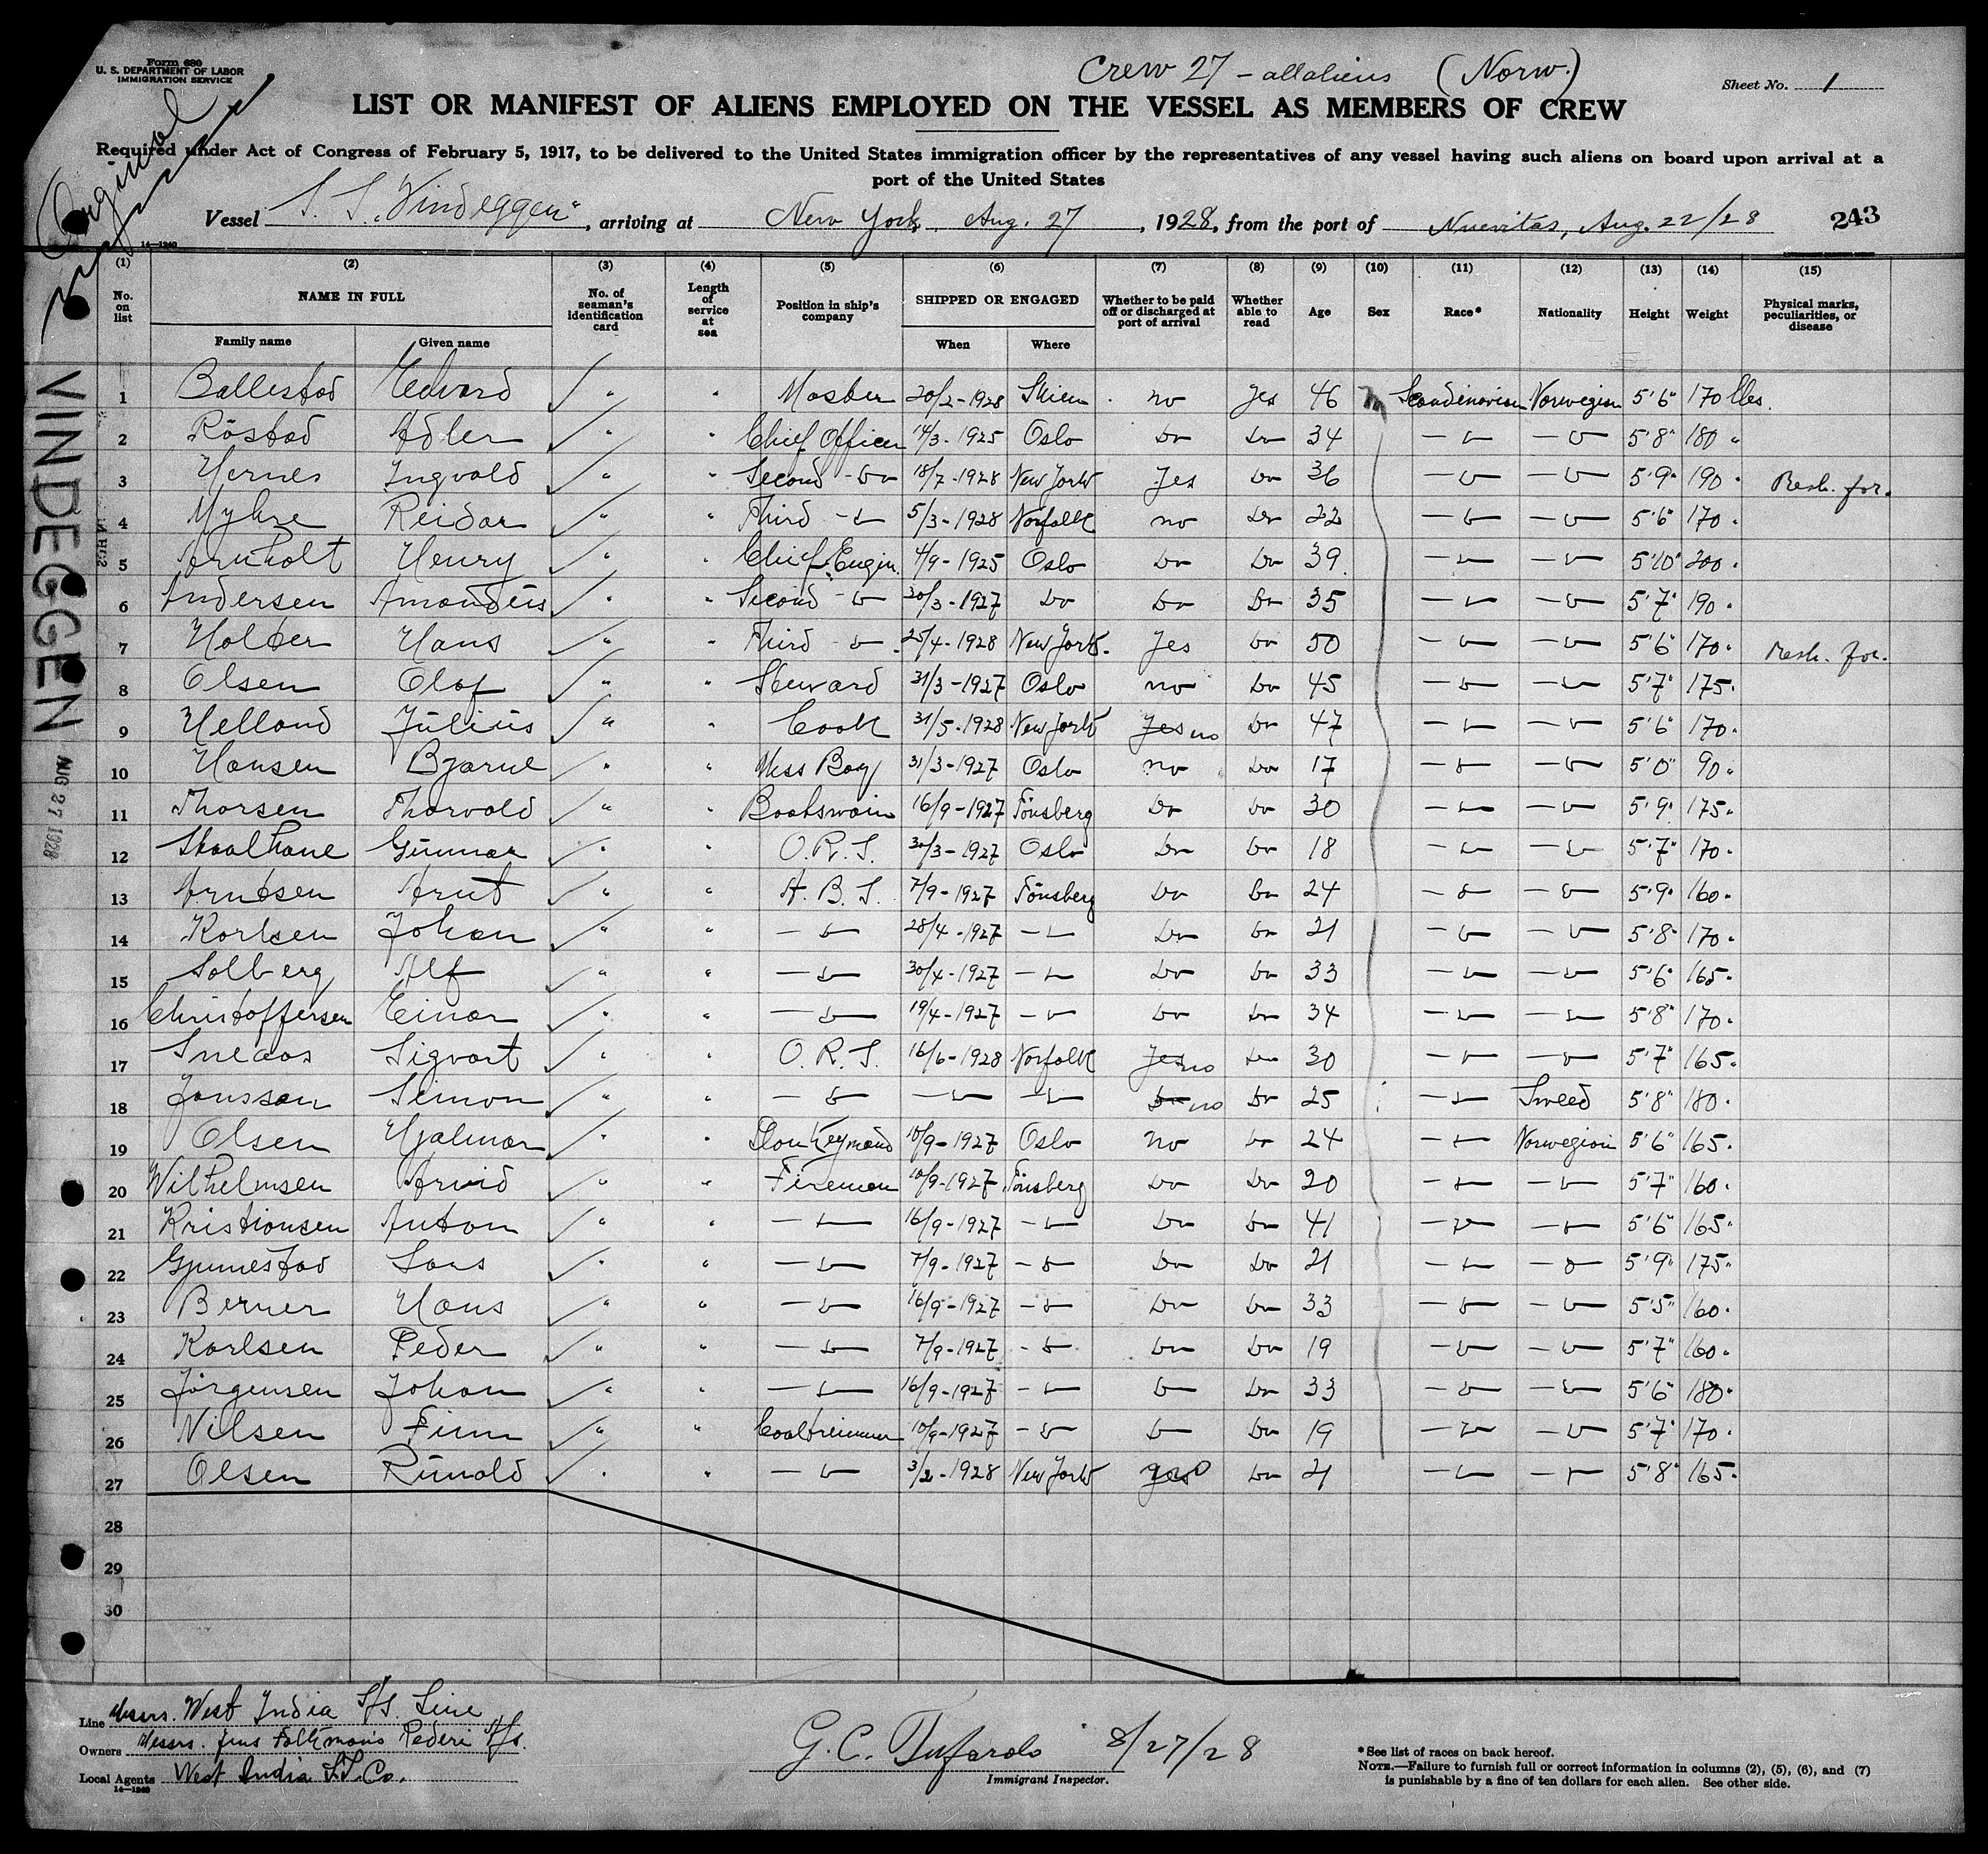 Form 680
U. S. DEPARTMENT OF LABOR
IMMIGRATION SERVICE
Original
Crew 27 - all aliens (Norw.)
Sheet No. 1
LIST OR MANIFEST OF ALIENS EMPLOYED ON THE VESSEL AS MEMBERS OF CREW
Required under Act of Congress of February 5, 1917, to be delivered to the United States immigration officer by the representatives of any vessel having such aliens on board upon arrival at a
port of the United States
Vessel S. S. „Vindeggen", arriving at New York, Aug. 27, 1928, from the port of Nuevitas, Aug. 22/28 243
14—1240
(1) (2) (3) (4) (5) (6) (7) (8) (9) (10) (11) (12) (13) (14) (15)
No. on list NAME IN FULL No. of seaman's identification card Length of service at sea Position in ship's company SHIPPED OR ENGAGED Whether to be paid off or discharged at port of arrival Whether able to read Age Sex Race* Nationality Height Weight Physical marks, peculiarities, or disease
Family name Given name When Where
1 Ballestad Edvard " " Master 20/2-1928 Skien no yes 46 m Scandinavian Norwegian 5'6" 170 lbs.
2 Röstad Adler " " Chief Officer 14/3-1925 Oslo do do 34 - " - - " - 5'8" 180 "
3 Hernes Ingvald " " Second - do 18/7-1928 New York Yes do 36 - " - - " - 5'9" 190 " Resh. for.
4 Myhre Reidar " " Third - " 5/3-1928 Norfolk no do 22 - " - - " - 5'6" 170 "
5 Arnholt Henry " " Chief Engin. 4/9-1925 Oslo do do 39 - " - - " - 5'10" 200 "
6 Andersen Amandus " " Second - " 30/3-1927 do do do 35 - " - - " - 5'7" 190 "
7 Holter Hans " " Third - " - 25/4-1928 New York Yes do 50 - " - - " - 5'6" 170 " Resh. for.
8 Olsen Olaf " " Steward 31/3-1927 Oslo no do 45 - " - - " - 5'7" 175 "
9 Helland Julius " " Cook 31/5-1928 New York Yes no do 47 - " - - " - 5'6" 170 "
10 Hansen Bjarne " " Mess Boy 31/3-1927 Oslo no do 17 - " - - " - 5'0" 90 "
11 Thorsen Thorvald " " Boatswain 16/9-1927 Tönsberg do do 30 - " - - " - 5'9" 175 "
12 Skaalhane Gunnar " " O. R. S. 30/3-1927 Oslo do do 18 - " - - " - 5'7" 170 "
13 Arntsen Arnt " " A. B. S. 7/9-1927 Tönsberg do do 24 - " - - " - 5'9" 160 "
14 Karlsen Johan " " - " - 28/4-1927 - " do do 21 - " - - " - 5'8" 170 "
15 Solberg Alf " " - " - 30/4-1927 - " do do 33 - " - - " - 5'6" 165 "
16 Christoffersen Einar " " - " - 19/4-1927 - " - do do 34 - " - - " - 5'8" 170 "
17 Sneaas Sigvart " " O. R. S. 16/6-1928 Norfolk Yes no do 30 - " - - " - 5'7" 165 "
18 Jonsson Seimon " " - " - - " - - " - do no do 25 - " - Sweed 5'8" 180 "
19 Olsen Hjalmar " " Donkeymand 10/9-1927 Oslo no do 24 - " - Norwegian 5'6" 165 "
20 Wilhelmsen Arvid " " Fireman 10/9-1927 Tönsberg do do 20 - " - - " - 5'7" 160 "
21 Kristiansen Anton " " - " - 16/9-1927 - " - do do 41 - " - - " - 5'6" 165 "
22 Gjunnestad Lars " " - " - 7/9-1927 - " - do do 21 - " - - " - 5'9" 175 "
23 Berner Hans " " - " - 16/9-1927 - " - do do 33 - " - - " - 5'5" 160 "
24 Karlsen Peder " " - " - 7/9-1927 - " - do do 19 - " - - " - 5'7" 160 "
25 Jörgensen Johan " " - " - 16/9-1927 - " - " do 33 - " - - " - 5'6" 180 "
26 Nilsen Finn " " Coaltrimmer 10/9-1927 - " - " do 19 - " - - " - 5'7" 170 "
27 Olsen Runald " " - " - 3/2-1928 New York do 21 - " - - " - 5'8" 165 "
28
29
30
VINDEGGEN
AUG 27 1928
Line Messrs. West India S/S. Line
Owners Messrs. Rederi A/S.
Local Agents West India S.S. Co.
14—1240
G. C. Tufarolo 8/27/28
Immigrant Inspector.
*See list of races on back hereof.
NOTE.—Failure to furnish full or correct information in columns (2), (5), (6), and (7)
is punishable by a fine of ten dollars for each alien. See other side.